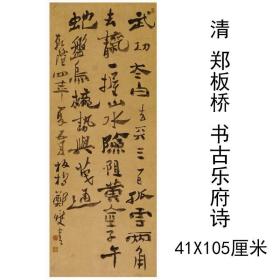 武功太白去天三百孤雲兩角
去天一握山水險阻黄金子午
蛇盤烏櫳勢與天通
乾隆四年夏五月板橋鄭燮
清 郑板桥 书古乐府诗
41X105厘米